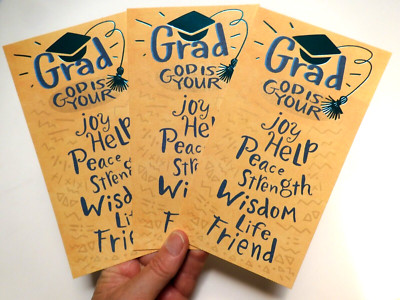 Grad
GOD IS
YOUR
joy
HeLP
Peace
Strength
Wisdom
Life
Friend
Grad
GOD IS
YOUR
joy
Grad
GOD IS
YOUR
joy
HeLP
Peace
Strength
Wisdom
Life
Friend